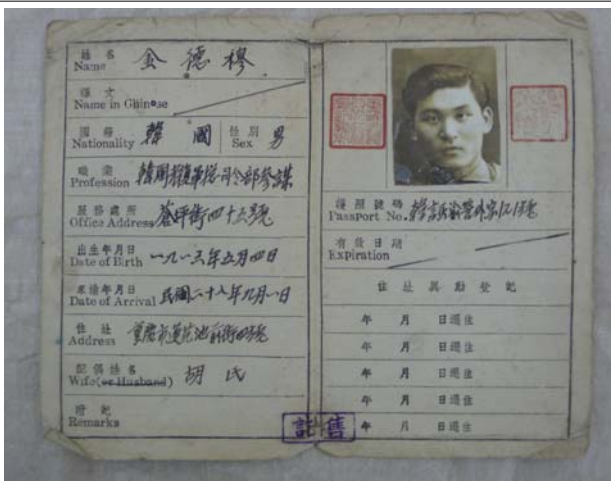 姓名 金德穆
Name
譯文
Name in Chinese
國籍 韓國 性別 男
Nationality Sex
職業 韓國光復軍總司令部參謀
Profession
服務處所
Office Address 蒼坪街四十五號
出生年月日
Date of Birth 一九一三年五月四日
來渝年月日
Date of Arrival 民國二十八年九月一日
住址
Address 重慶市蓮花池前街四號
配偶姓名 胡氏
Wife(or Husband)
附記
Remarks
護照號碼
Passport No.
有效日期
Expiration
住址異動登記
年 月 日遷住
年 月 日遷住
年 月 日遷住
年 月 日遷住
年 月 日遷住